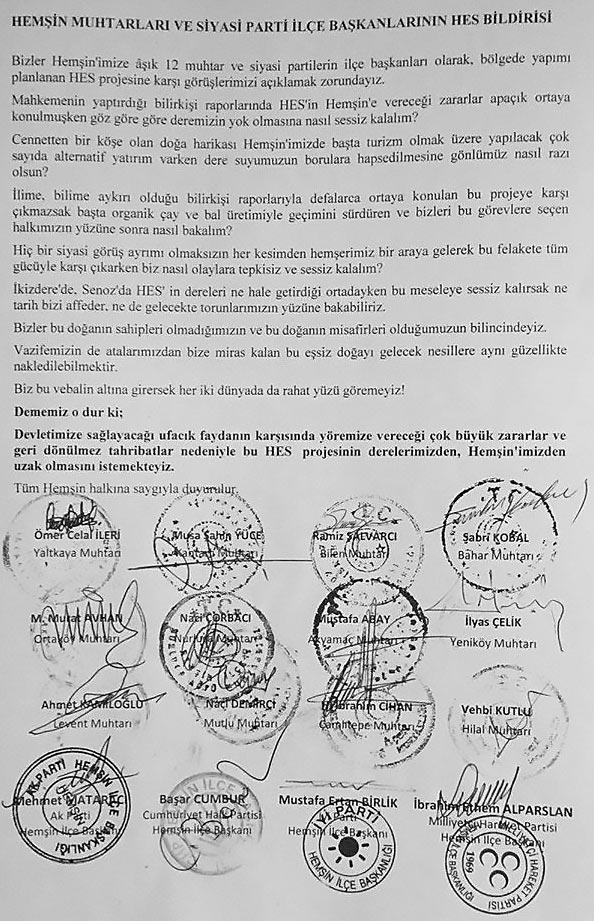 HEMŞİN MUHTARLARI VE SİYASİ PARTİ İLÇE BAŞKANLARININ HES BİLDİRİSİ
Bizler Hemşin'imize âşık 12 muhtar ve siyasi partilerin ilçe başkanları olarak, bölgede yapımı
planlanan HES projesine karşı görüşlerimizi açıklamak zorundayız.
Mahkemenin yaptırdığı bilirkişi raporlarında HES'in Hemşin'e vereceği zararlar apaçık ortaya
konulmuşken göz göre göre deremizin yok olmasına nasıl sessiz kalalım?
Cennetten bir köşe olan doğa harikası Hemşin'imizde başta turizm olmak üzere yapılacak çok
sayıda alternatif yatırım varken dere suyumuzun borulara hapsedilmesine gönlümüz nasıl razı
olsun?
İlime, bilime aykırı olduğu bilirkişi raporlarıyla defalarca ortaya konulan bu projeye karşı
çıkmazsak başta organik çay ve bal üretimiyle geçimini sürdüren ve bizleri bu görevlere seçen
halkımızın yüzüne sonra nasıl bakalım?
Hiç bir siyasi görüş ayrımı olmaksızın her kesimden hemşerimiz bir araya gelerek bu felakete tüm
gücüyle karşı çıkarken biz nasıl olaylara tepkisiz ve sessiz kalalım?
İkizdere'de, Senoz'da HES' in dereleri ne hale getirdiği ortadayken bu meseleye sessiz kalırsak ne
tarih bizi affeder, ne de gelecekte torunlarımızın yüzüne bakabiliriz.
Bizler bu doğanın sahipleri olmadığımızın ve bu doğanın misafirleri olduğumuzun bilincindeyiz.
Vazifemizin de atalarımızdan bize miras kalan bu eşsiz doğayı gelecek nesillere aynı güzellikte
nakledilebilmektir.
Biz bu vebalin altına girersek her iki dünyada da rahat yüzü göremeyiz!
Dememiz o dur ki;
Devletimize sağlayacağı ufacık faydanın karşısında yöremize vereceği çok büyük zararlar ve
geri dönülmez tahribatlar nedeniyle bu HES projesinin derelerimizden, Hemşin'imizden
uzak olmasını istemekteyiz.
Tüm Hemşin halkına saygıyla duyurulur.
Ömer Celal İLERİ Musa Şahin YÜCE Ramiz SALVARCI Sabri KOBAL
Yaltkaya Muhtarı Kantarlı Muhtarı Bilen Muhtarı Bahar Muhtarı
M. Murat AYHAN Naci ÇORBACI Mustafa ABAY İlyas ÇELİK
Ortaköy Muhtarı Nurluca Muhtarı Akyamaç Muhtarı Yeniköy Muhtarı
Ahmet KAMİLOĞLU Naci DEMİRCİ H. İbrahim CİHAN Vehbi KUTLU
Levent Muhtarı Mutlu Muhtarı Çamlıtepe Muhtarı Hilal Muhtarı
Mehmet MATARACI Başar CUMBUR Mustafa Ertan BİRLİK İbrahim Ethem ALPARSLAN
Ak Parti Cumhuriyet Halk Partisi İYİ Parti Milliyetçi Hareket Partisi
Hemşin İlçe Başkanı Hemşin İlçe Başkanı Hemşin İlçe Başkanı Hemşin İlçe Başkanı
AK PARTİ HEMŞİN İLÇE BAŞKANLIĞI
İYİ PARTİ HEMŞİN İLÇE BAŞKANLIĞI
MİLLİYETÇİ HAREKET PARTİSİ
1969